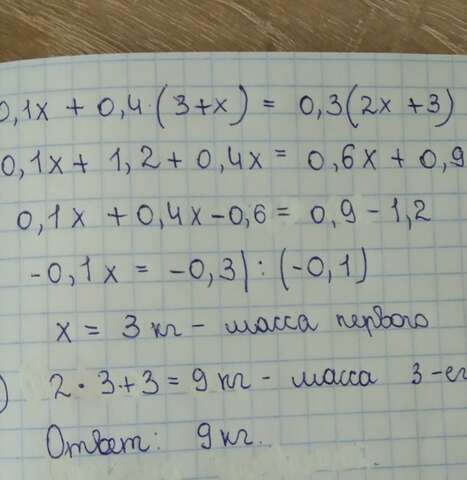 0,1x + 0,4·(3+x) = 0,3(2x+3)
0,1x + 1,2 + 0,4x = 0,6x + 0,9
0,1x + 0,4x - 0,6 = 0,9 - 1,2
-0,1x = -0,3| : (-0,1)
x = 3 кг - масса первого
) 2·3+3 = 9 кг - масса 3-ег
Ответ: 9 кг.